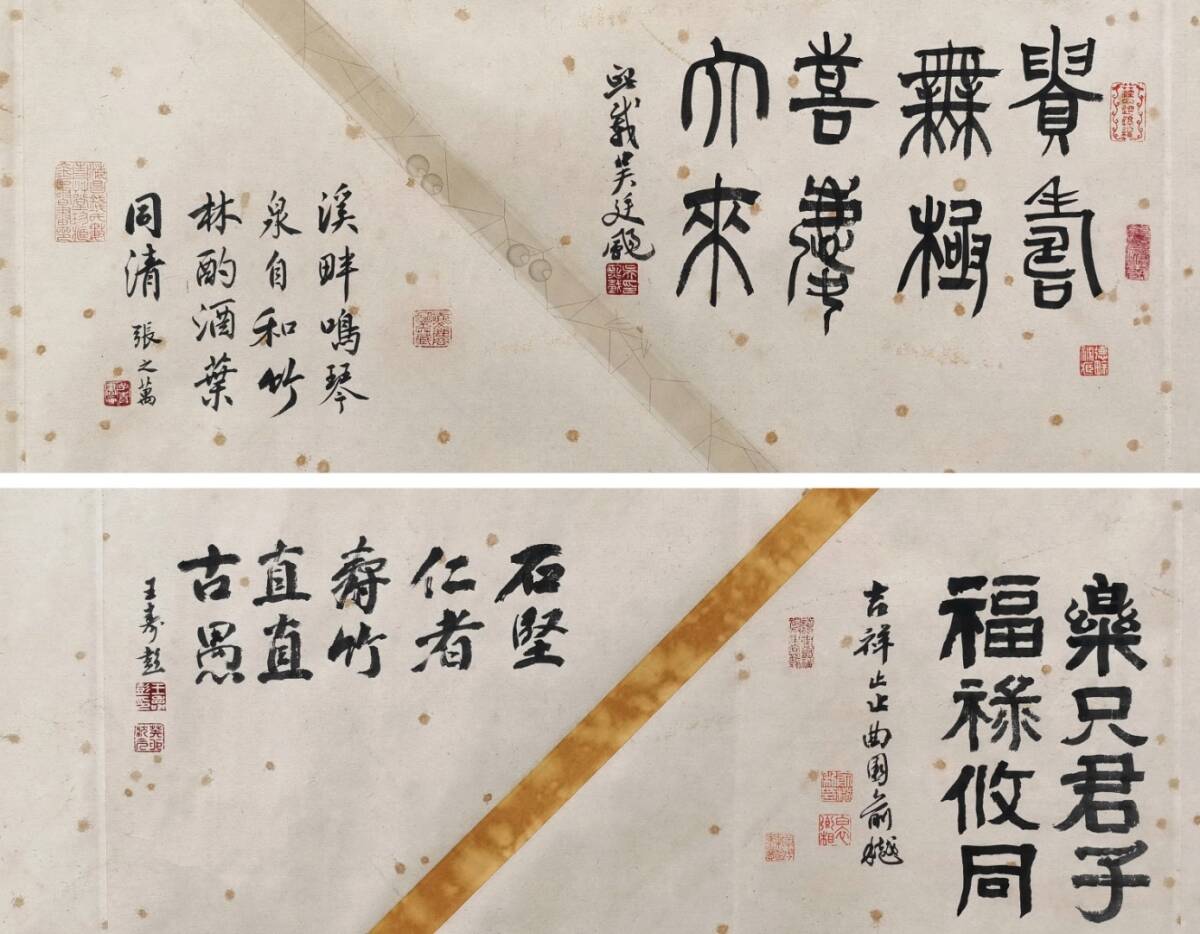 貴壽
無極
喜慶
大來
熙載吳廷颺
溪畔鳴琴
泉自和竹
林酌酒葉
同清
張之萬
樂只君子
福祿攸同
吉祥止止曲園俞樾
石堅
仁者
壽竹
直直
古愚
王壽彭
癸卯狀元